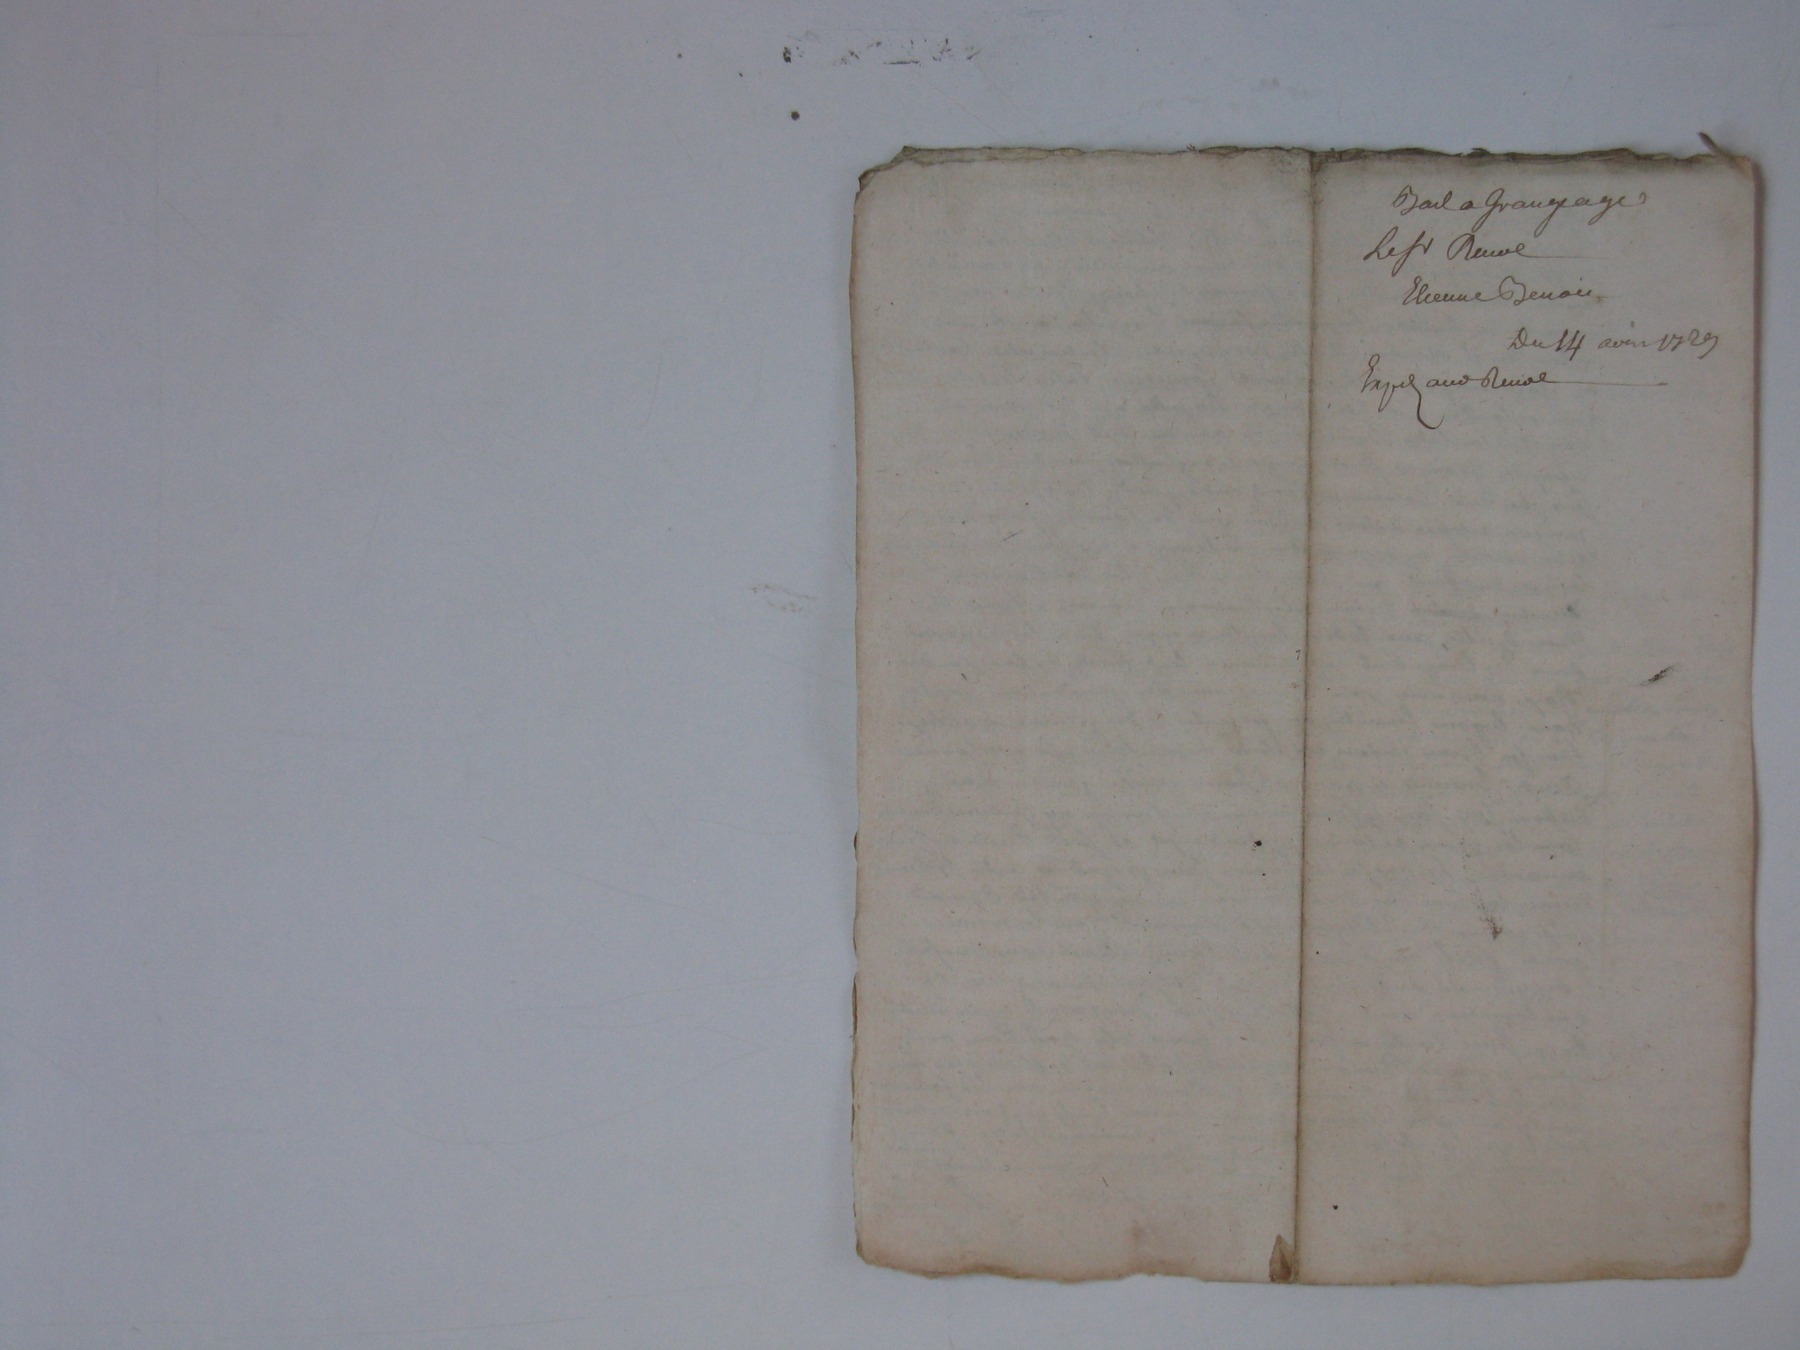 Bail a Grangeage
Le sr Revol
Etienne Benoit
Du 14 avril 1729
Expd aud Revol